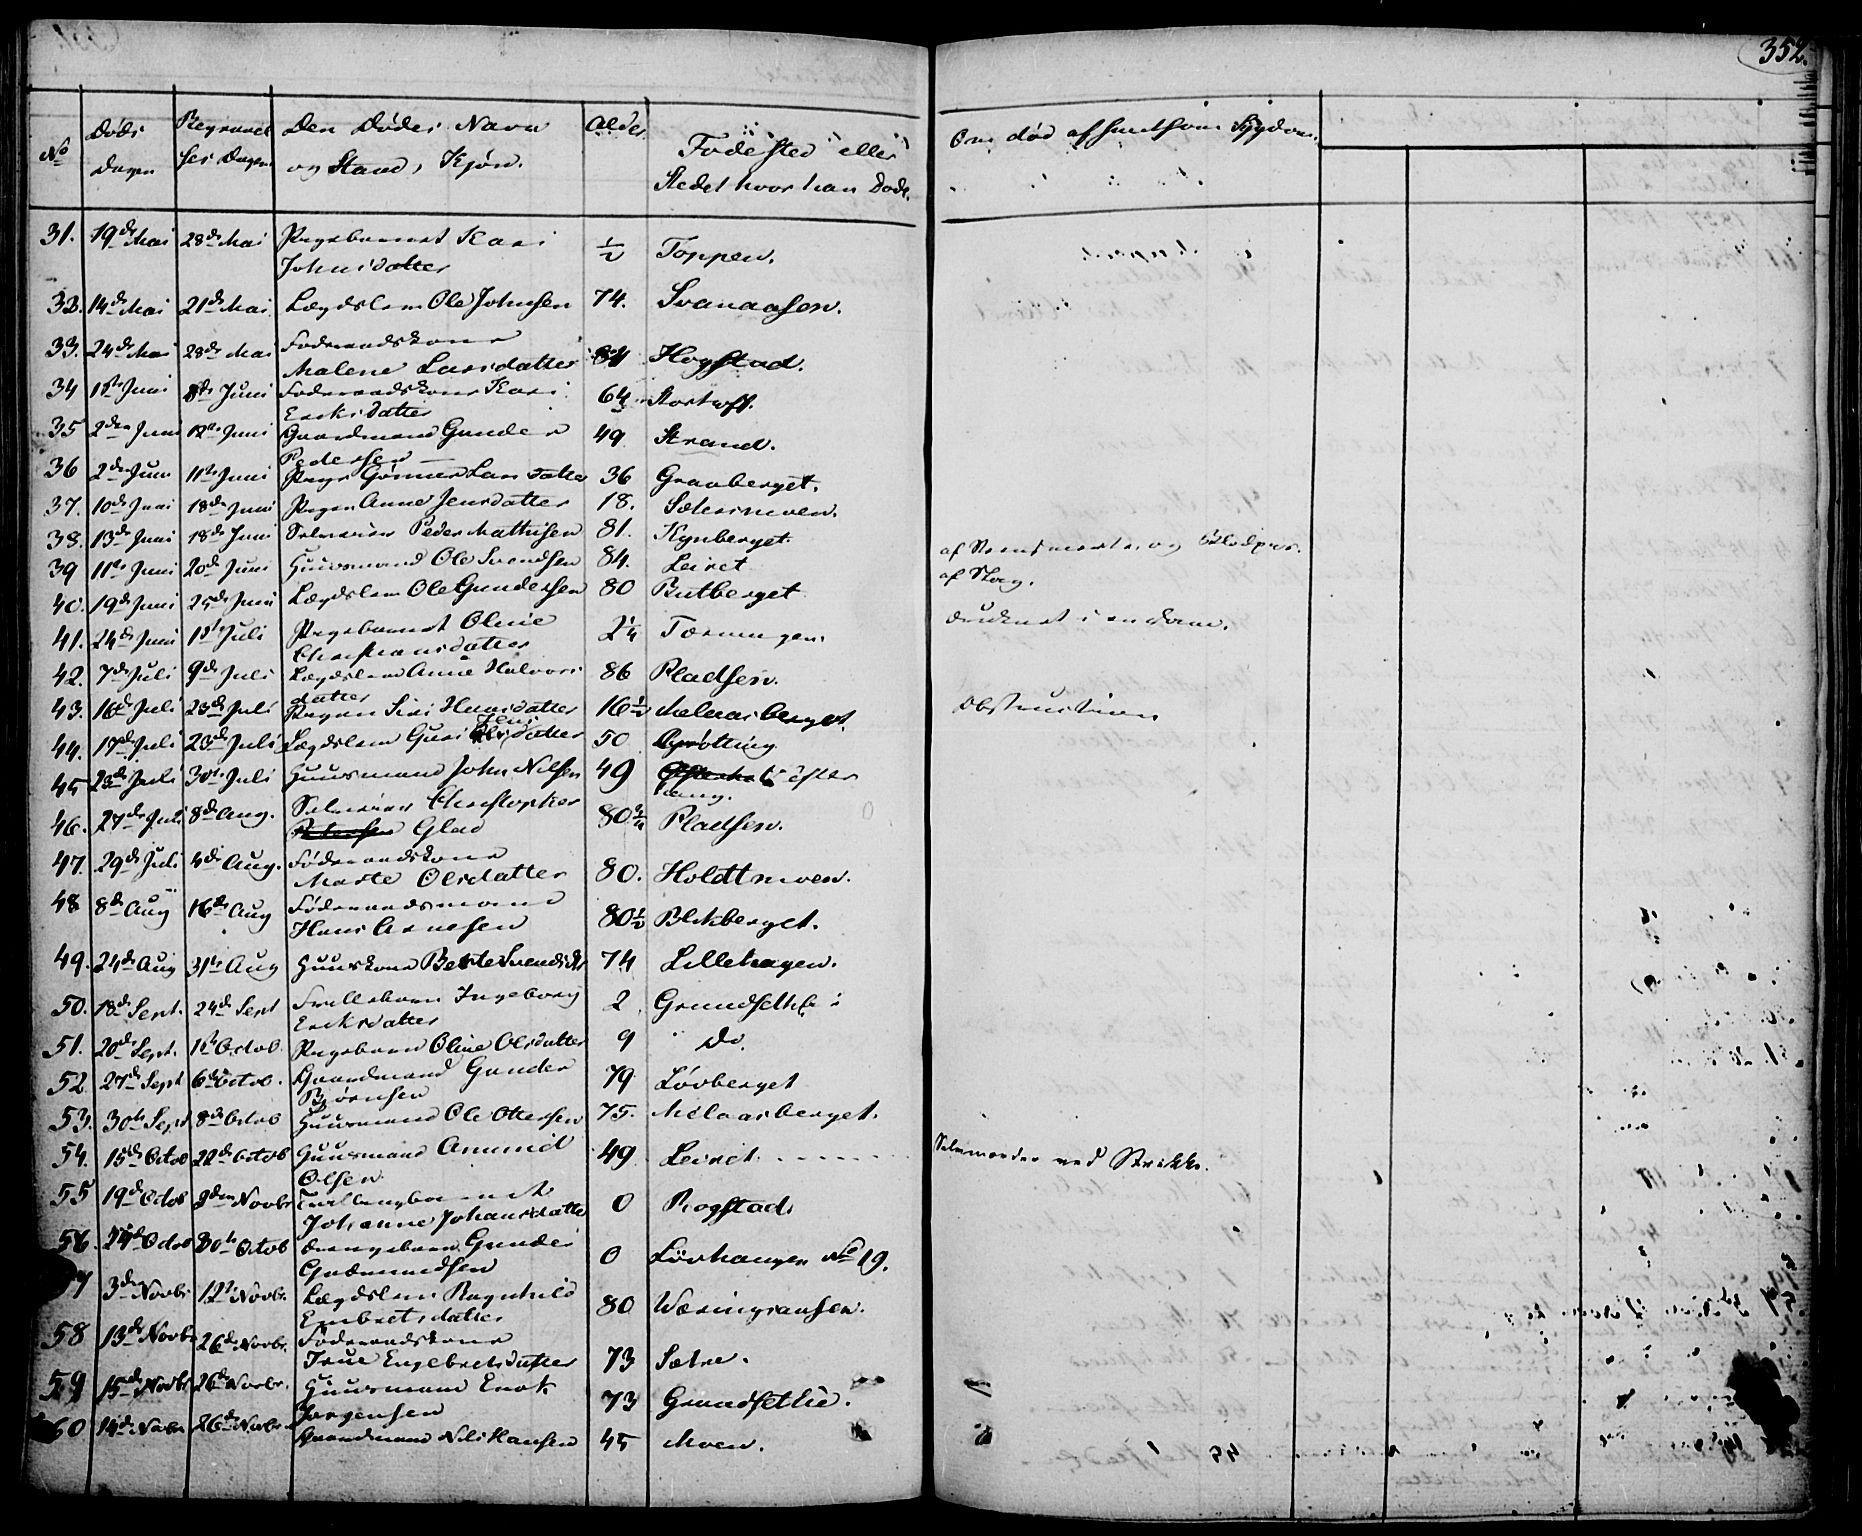 352.
No
Døds Dagen
Begravel ses Dagen
Den Dødes Navn og Stand, Kjøn.
Alder
Fødested eller Stedet hvor han Døde.
Om død af smitsom Sygdom.
31. 19de Mai 28de Mai Pigebarnet Kari
Johnsdatter ½ Toppen.
33. 14de Mai 21de Mai Lægdslem Ole Johnsen 74. Svanaasen.
33. 24de Mai 28de Mai Føderaadskone
Malene Larsdatter 84 Hogstad.
34 1ste Juni 8de Juni Føderaadskone Kari
Ericksdatter 64
35 2den Juni 12te Juni Gaardmand Gunder
Pedersen 49 Strand.
36 2den Juni 11te Juni Pige Gunner Lars datter 36 Graaberget.
37. 10de Juni 18de Juni Pigen Anne Jensdatter 18. Sætermoen.
38. 13de Juni 18de Juni Peder Mathisen 81. Kynberget.
39 11te Juni 20de Juni Huusmand Ole Svendsen 84. Leiret
af og
40. 19de Juni 25de Juni Lægdslem Ole Gundersen 80 Butberget
af
41. 24de Juni 1ste Juli Pigebarnet Oline
Christiansdatter 2¼ Tærningen.
druknet i en Dam.
42. 7de Juli 9de Juli Lægdslem Anne Halvors
datter 86 Pladsen.
43. 16de Juli 23de Juli Pigen Siri Hansdatter 16½ Melaasberget
Obstruction
44. 17de Juli 23de Juli Lægdslem Guri Jens datter 50
45 23de Juli 30te Juli Huusmand John Nilsen 49
46. 27de Juli 8de Aug. Christopher
Glad 80¾ Pladsen.
47. 29de Juli 4de Aug. Føderaadskone
Marte Olsdatter 80. Holdtmoen.
48 8de Aug 16de Aug Føderaadsmand
Hans Arnesen 80½ Blekberget.
49. 24de Aug 31te Aug Huuskone Berte Svends Dtr 74 Lillehagen.
50. 18de Sept. 24de Sept Ingeborg
Ericksdatter 2 Grundsethe
51. 20de Sept. 1ste Octob. Pigebarn Oline Olsdatter 9 do.
52. 27de Sept 6te Octob. Gaardmand Gunder
Bjørnsen 79 Løvberget
53. 30te Sept 8de Octob Huusmand Ole Ottersen 75. Melaasberget.
54. 15de Octob 22de Octob Huusmand Amund
Olsen 49 Leiret.
Selvmorder ved Strikke.
55 19de Octob 2den Novbr Tvillingbarnet
Johanne Johansdatter 0 Rogstad.
56. 24de Octob 30te Octob Drengebarn Gunder
Guddmundsen 0 Løvhaugen No 19.
57 3de Novbr 12te Novbr. Lægdslem Ragnhild
Embretsdatter 80
58 13de Novbr 26de Novbr. Føderaadskone
True Engebretsdatter 73 Sætre.
59 15de Novbr 26de Novbr. Huusmand Erik
Jørgensen 73 Grundsethe.
60 14de Novbr 26de Novbr. Gaardmand Nils Hansen 45 Moen.